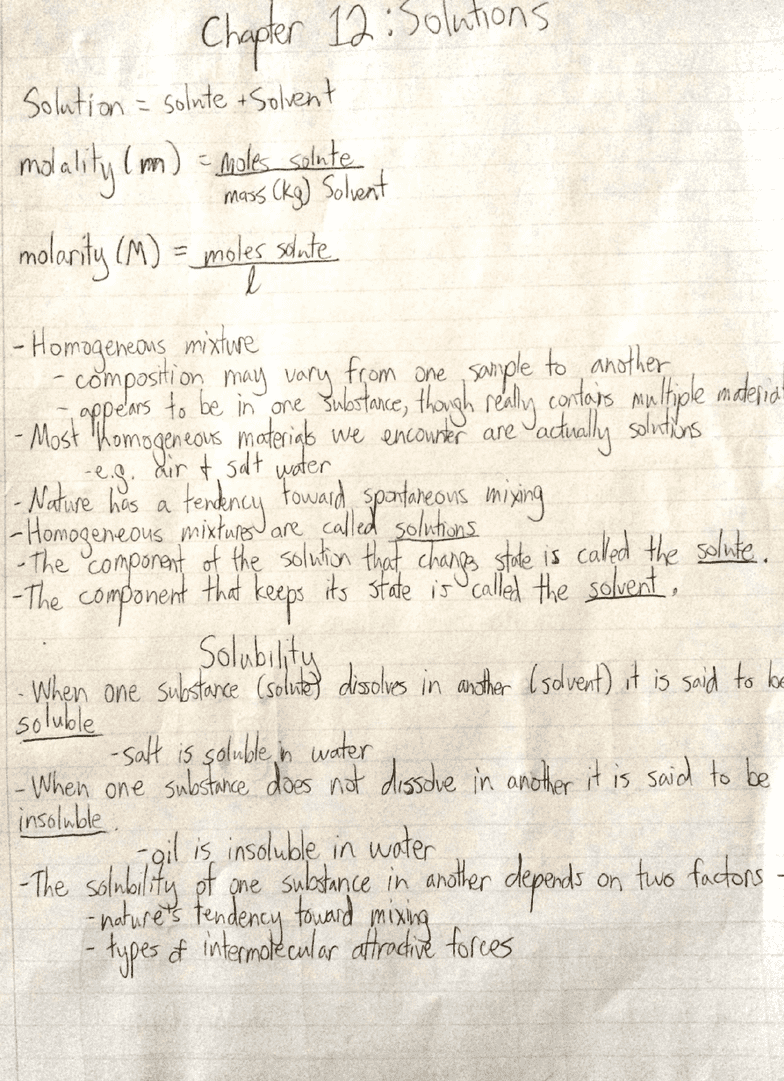 Chapter 12: Solutions
Solution = solute + Solvent
molality (m) = moles solute
mass (kg) Solvent
molarity (M) = moles solute
l
- Homogeneous mixture
- composition may vary from one sample to another
- appears to be in one substance, though really contains multiple material
- Most homogeneous materials we encounter are actually solutions
- e.g. air & salt water
- Nature has a tendency toward spontaneous mixing
- Homogeneous mixtures are called solutions
- The component of the solution that changes state is called the solute.
- The component that keeps its state is called the solvent.
Solubility
- When one substance (solute) dissolves in another (solvent) it is said to be
soluble
- salt is soluble in water
- When one substance does not dissolve in another it is said to be
insoluble.
- oil is insoluble in water
- The solubility of one substance in another depends on two factors -
- nature's tendency toward mixing
- types of intermolecular attractive forces